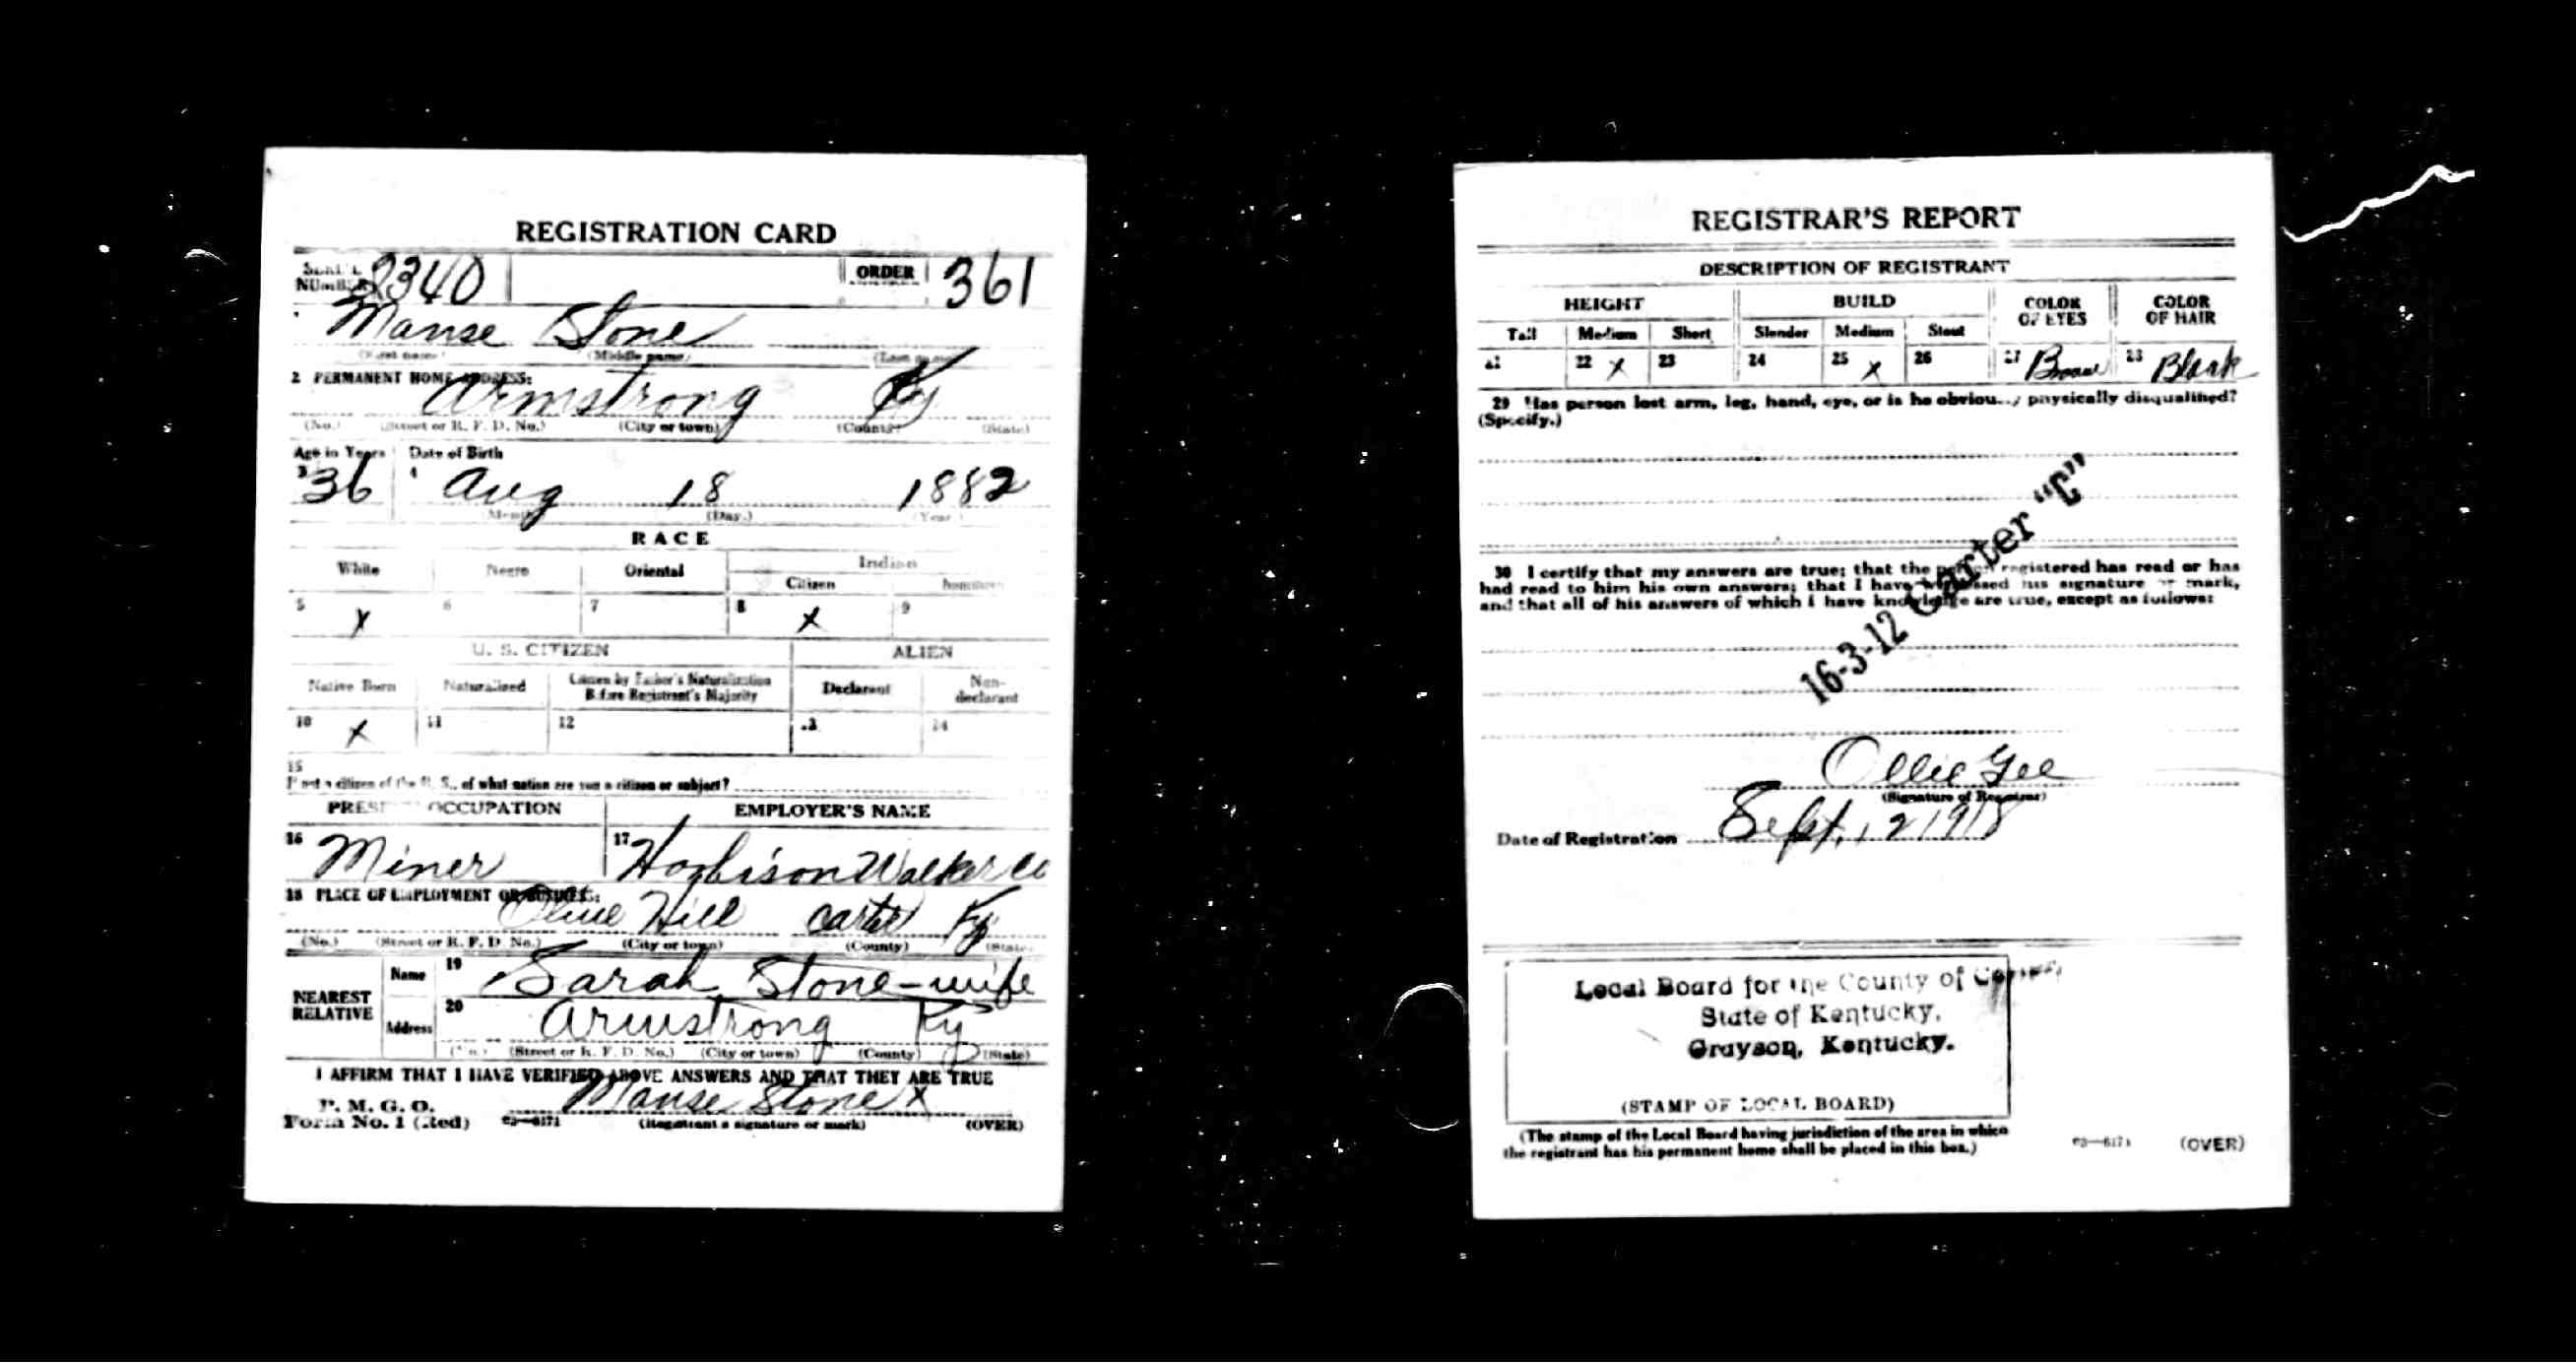 REGISTRATION CARD
SERIAL NUMBER 3340 ORDER 361
Manse Stone
(First name) (Middle name) (Last name)
2 PERMANENT HOME ADDRESS:
Armstrong Ky
(No.) (Street or R. F. D. No.) (City or town) (County) (State)
Age in Years Date of Birth
3 36 4 Aug 18 1882
(Month) (Day.) (Year.)
RACE
White Negro Oriental Indian
Citizen Noncitizen
5 X 6 7 8 X 9
U. S. CITIZEN ALIEN
Native Born Naturalized Citizen by Father's Naturalization Before Registrant's Majority Declarant Non-declarant
10 X 11 12 13 14
15
If not a citizen of the U. S., of what nation are you a citizen or subject?
PRESENT OCCUPATION EMPLOYER'S NAME
16 Miner 17 Harbison Walker Co
18 PLACE OF EMPLOYMENT OR BUSINESS:
Olive Hill Carter Ky
(No.) (Street or R. F. D. No.) (City or town) (County) (State)
NEAREST RELATIVE
Name 19 Sarah Stone - wife
Address 20 Armstrong Ky
(No.) (Street or R. F. D. No.) (City or town) (County) (State)
I AFFIRM THAT I HAVE VERIFIED ABOVE ANSWERS AND THAT THEY ARE TRUE
P. M. G. O.
Form No. 1 (Red) 03—6171 Manse Stone X
(Registrant's signature or mark) (OVER)
REGISTRAR'S REPORT
DESCRIPTION OF REGISTRANT
HEIGHT BUILD COLOR OF EYES COLOR OF HAIR
Tall Medium Short Slender Medium Stout
21 22 X 23 24 25 X 26 27 Brown 28 Black
29 Has person lost arm, leg, hand, eye, or is he obviously physically disqualified?
(Specify.)
30 I certify that my answers are true; that the person registered has read or has
had read to him his own answers; that I have witnessed his signature or mark,
and that all of his answers of which I have knowledge are true, except as follows:
16-3-12 Carter "C"
Ollie Gee
(Signature of Registrar)
Date of Registration Sept. 12 1918
Local Board for the County of Carter,
State of Kentucky,
Grayson, Kentucky.
(STAMP OF LOCAL BOARD)
(The stamp of the Local Board having jurisdiction of the area in which
the registrant has his permanent home shall be placed in this box.)
03—6171 (OVER)